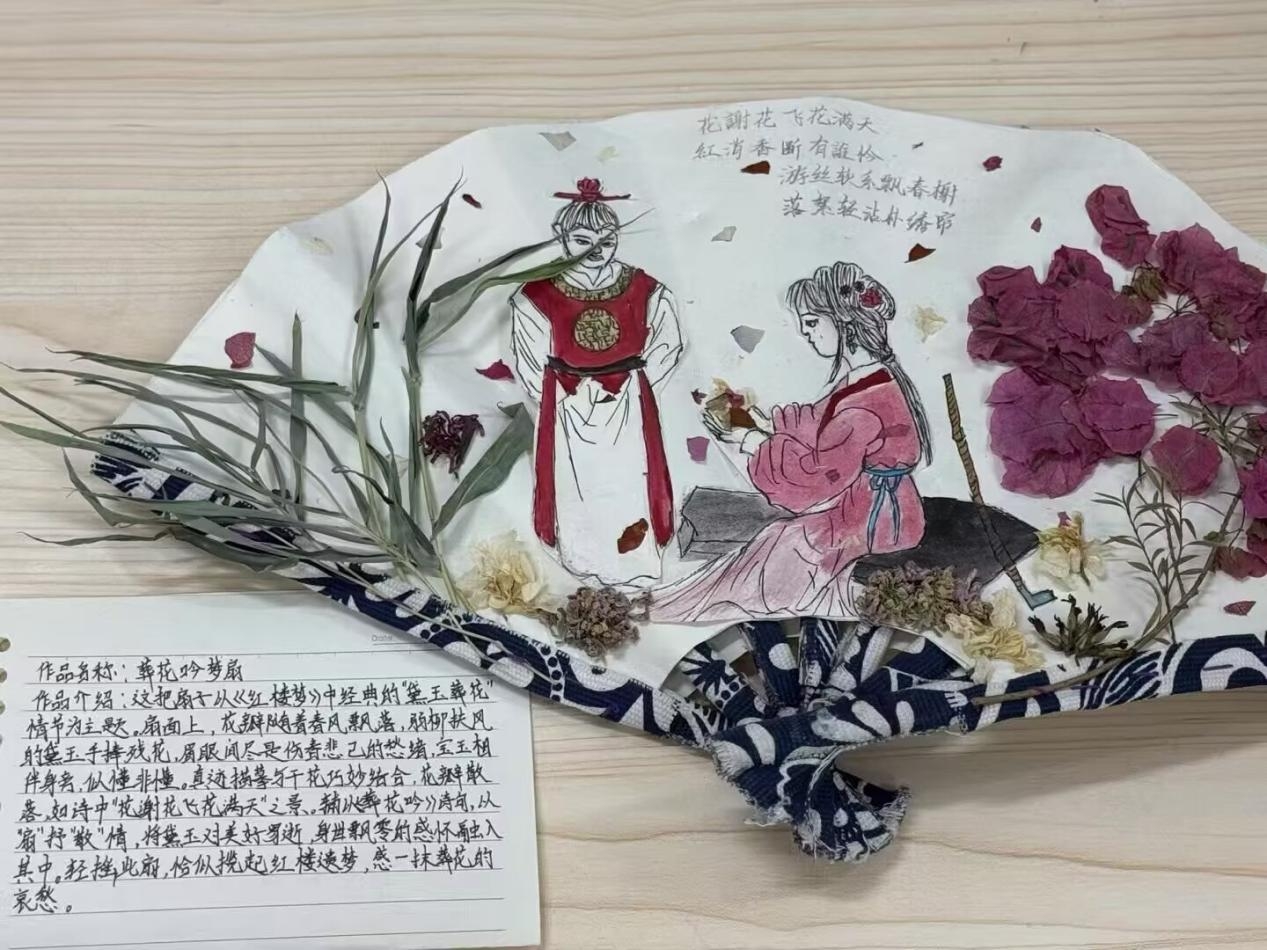 花謝花飞花满天
红消香断有誰怜
游丝软系飘春榭
落絮轻沾扑绣帘
Date
作品名称：葬花吟梦扇
作品介绍：这把扇子以《红楼梦》中经典的"黛玉葬花"
情节为主题。扇面上，花瓣随着春风飘落，弱柳扶风
的黛玉手捧残花，眉眼间尽是伤春悲己的愁绪，宝玉相
伴身旁，似懂非懂。真迹描摹与干花巧妙结合，花瓣散
落，如诗中"花谢花飞花满天"之景。辅以《葬花吟》诗句，以
"扇"抒"散"情，将黛玉对美好易逝、身世飘零的感怀融入
其中。轻摇此扇，恰似揽起红楼遗梦，感一抹葬花的
哀愁。